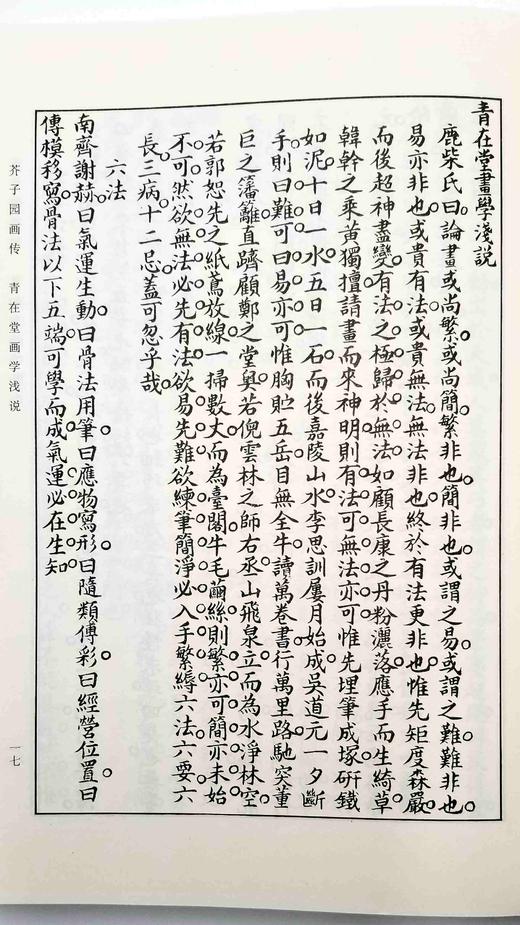 青在堂畫學淺說
鹿柴氏曰論畫或尚繁或尚簡繁非也簡非也或謂之易或謂之難難非也
易亦非也或貴有法或貴無法無法非也終於有法更非也惟先矩度森嚴
而後超神盡變有法之極歸於無法如顧長康之丹粉灑落應手而生綺草
韓幹之乘黃獨擅請畫而來神明則有法可無法亦可惟先埋筆成塚研鐵
如泥十日一水五日一石而後嘉陵山水李思訓屢月始成吳道元一夕斷
手則曰難可曰易亦可惟胸貯五岳目無全牛讀萬卷書行萬里路馳突董
巨之籓籬直躋顧鄭之堂奧若倪雲林之師右丞山飛泉立而為水淨林空
若郭恕先之紙鳶放線一掃數丈而為臺閣牛毛繭絲則繁亦可簡亦未始
不可然欲無法必先有法欲易先難欲練筆簡淨必入手繁縟六法六要六
長三病十二忌蓋可忽乎哉
六法
南齊謝赫曰氣運生動曰骨法用筆曰應物寫形曰隨類傅彩曰經營位置曰
傳模移寫骨法以下五端可學而成氣運必在生知
芥子园画传 青在堂画学浅说
一七